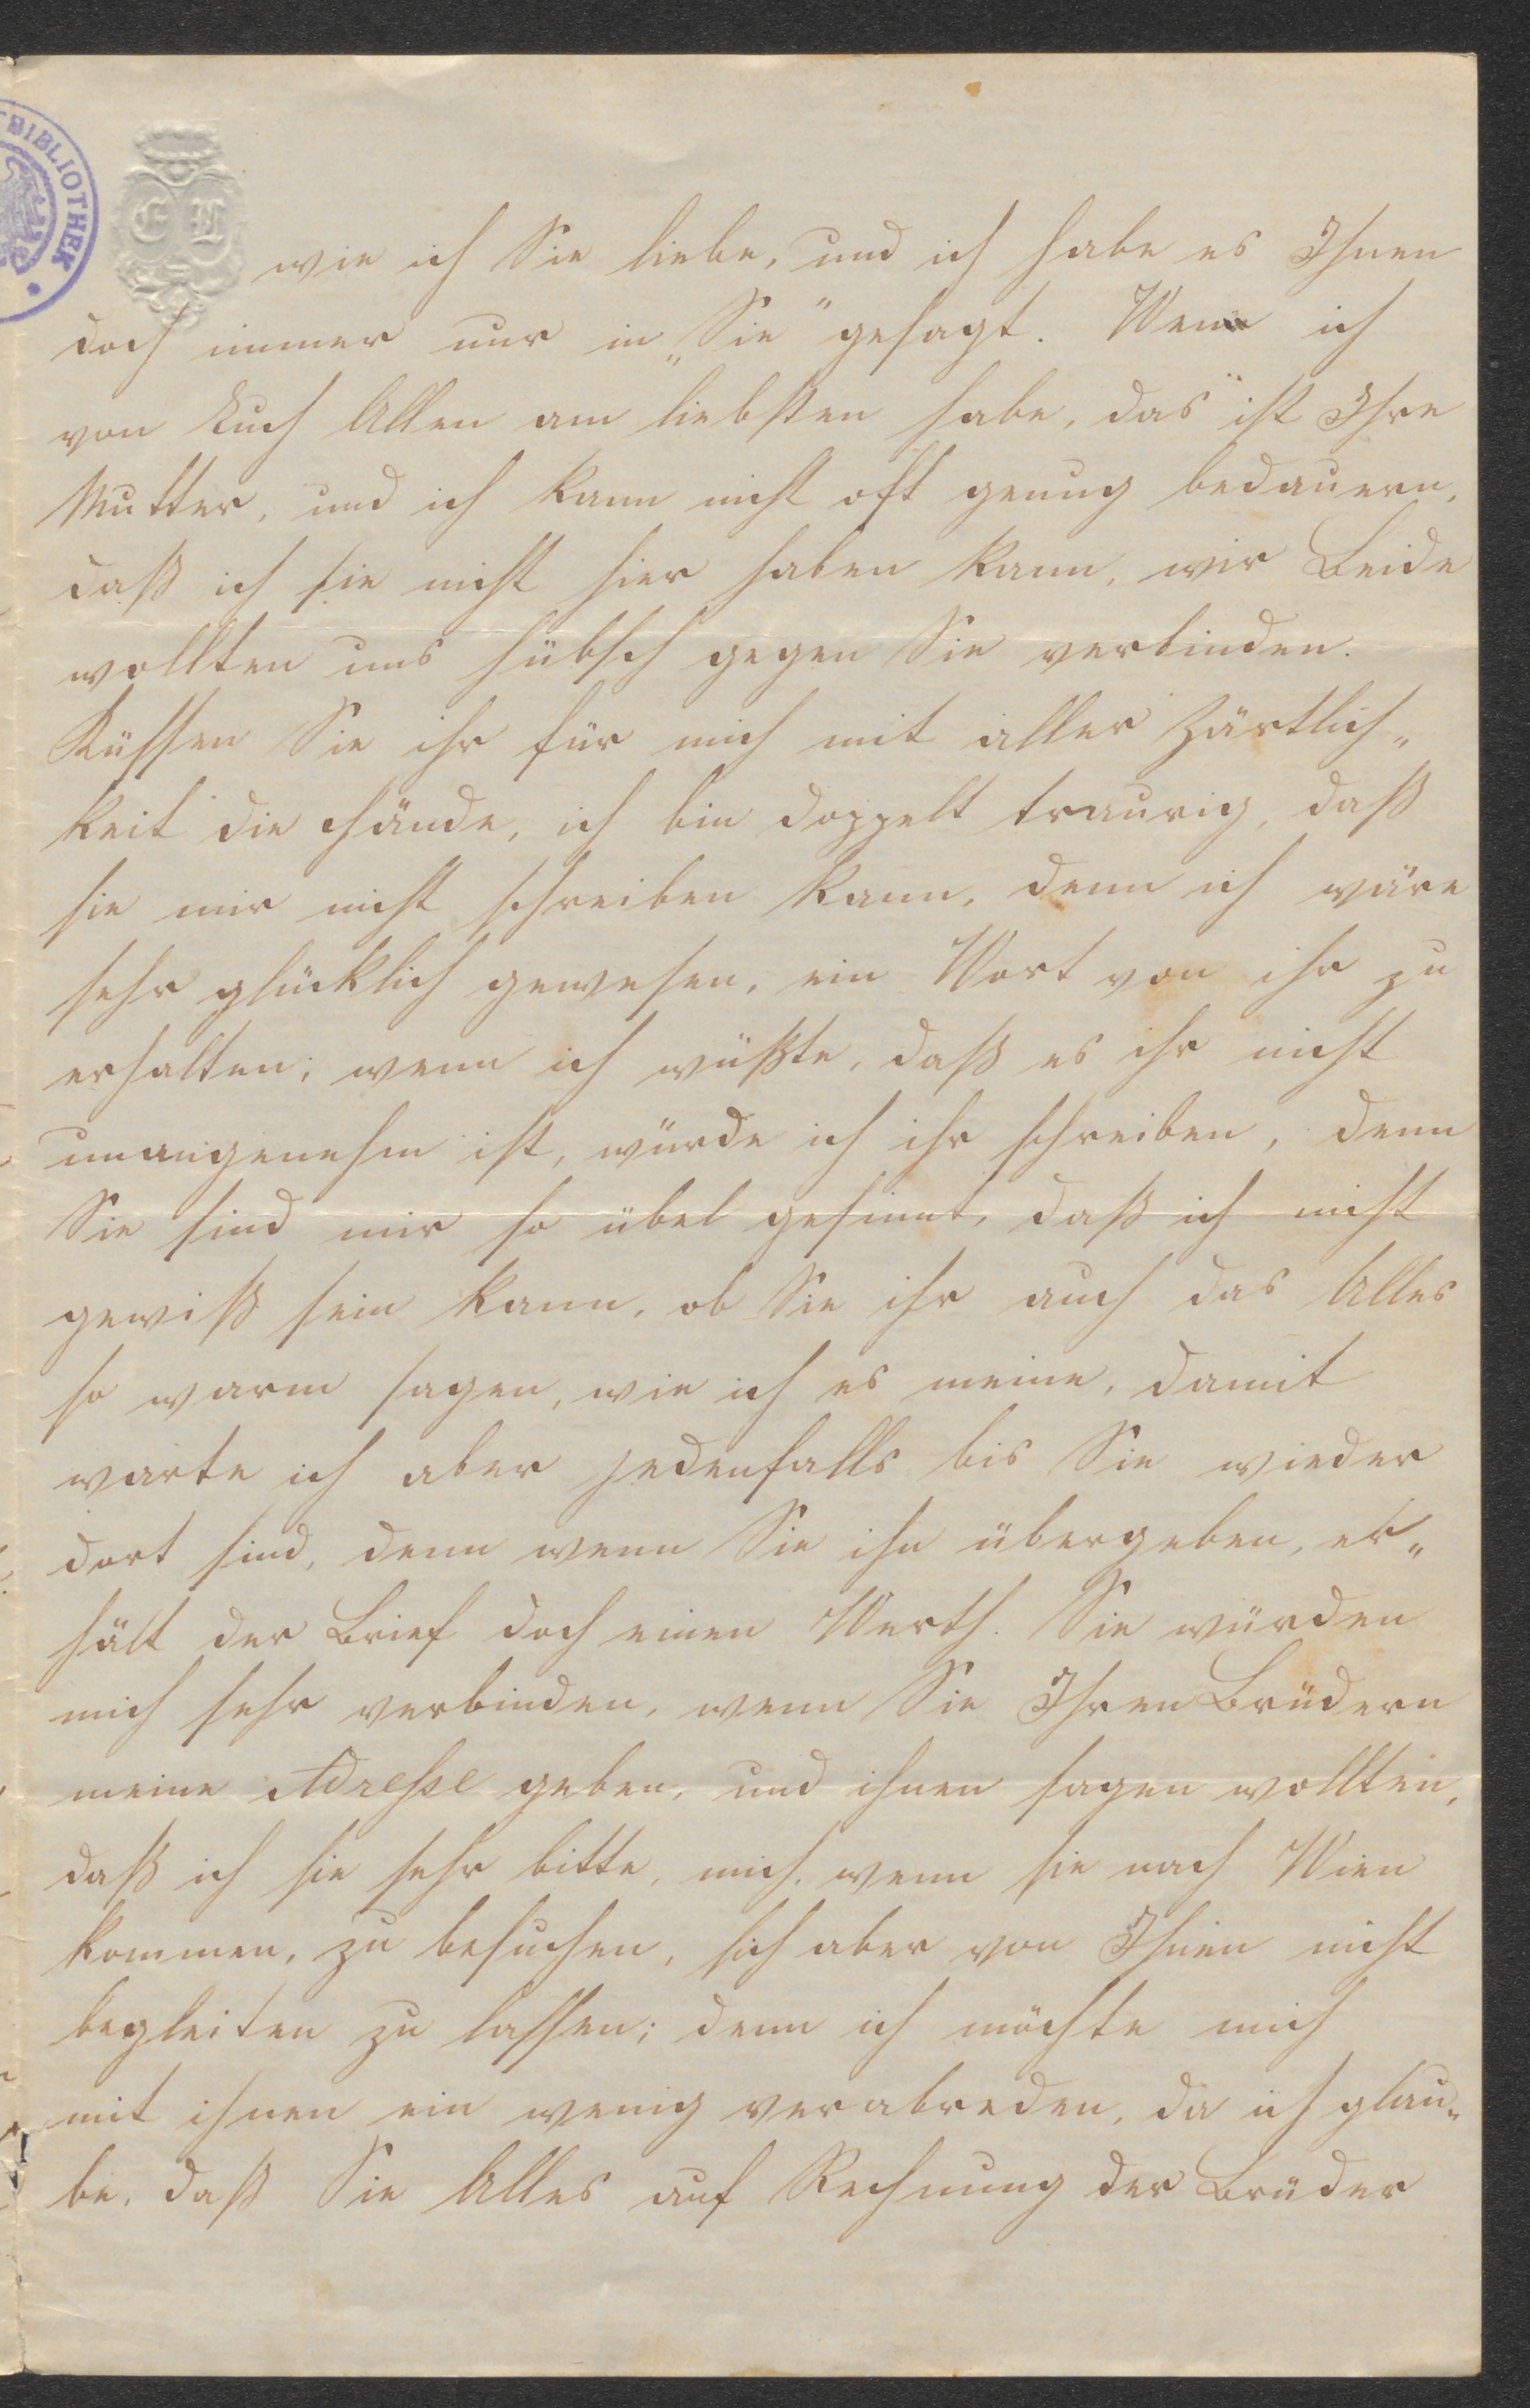 BIBLIOTHEK
wie ich Sie liebe, und ich habe es Ihnen
doch immer nur in „Sie“ gesagt. Wen ich
von Euch Allen am liebsten habe, das ist Ihre
Mutter, und ich kann nicht oft genug bedauern,
daß ich sie nicht hier haben kann, wir Beide
wollten uns hübsch gegen Sie verbinden.
Küssen Sie ihr für mich mit aller Zärtlich„
keit die Hände, ich bin doppelt traurig, daß
sie mir nicht schreiben kann, denn ich wäre
sehr glücklich gewesen, ein Wort von ihr zu
erhalten; wenn ich wüßte, daß es ihr nicht
unangenehm ist, würde ich ihr schreiben, denn
Sie sind mir so übel gesinnt, daß ich nicht
gewiß sein kann, ob Sie ihr auch das Alles
so warm sagen, wie ich es meine, damit
warte ich aber jedenfalls bis Sie wieder
dort sind, denn wenn Sie ihn übergeben, er„
hält der Brief doch einen Werth. Sie würden
mich sehr verbinden, wenn Sie Ihren Brüdern
meine Adresse geben, und ihnen sagen wollten,
daß ich sie sehr bitte, mich, wenn sie nach Wien
kommen, zu besuchen, sich aber von Ihnen nicht
begleiten zu lassen; denn ich möchte mich
mit ihnen ein wenig verabreden, da ich glau„
be, daß Sie Alles auf Rechnung der Brüder